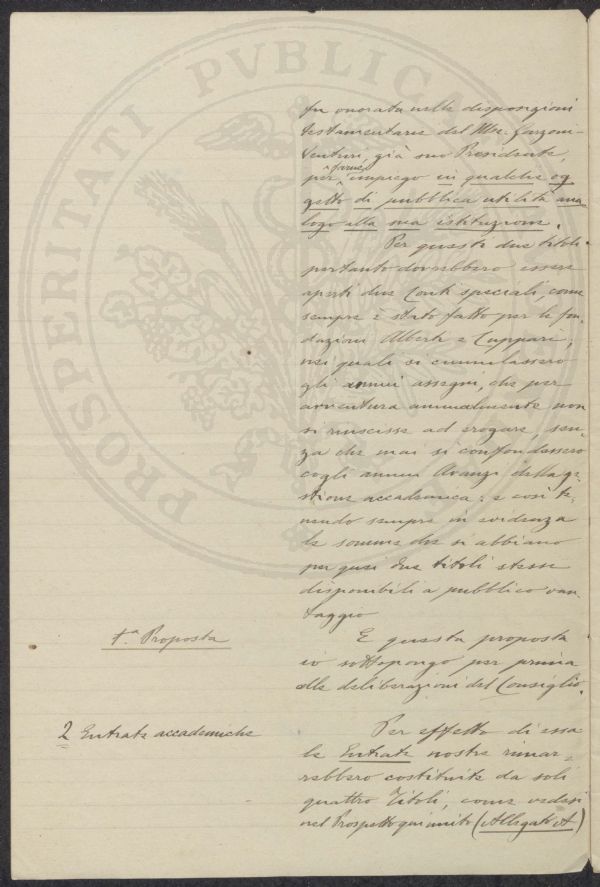 PROSPERITATI PVBLICAE
fu onorata nelle disposizioni
testamentarie del Mse. Garzoni-
Venturi, già suo Presidente,
per farne impiego in qualche og
getto di pubblica utilità ana
logo alla sua istituzione.
Per questi due titoli
pertanto dovrebbero essere
aperti due Conti speciali, come
sempre è stato fatto per le fon
dazioni Alberti e Cuppari,
nei quali si cumulassero
gli annui assegni, che per
avventura annualmente non
si riuscisse ad erogare, sen-
za che mai si confondessero
cogli annui Avanzi della ge-
stione accademica: e così te-
nendo sempre in evidenza
le somme che si abbiano
per quei due titoli stessi
disponibili a pubblico van-
taggio
1.a Proposta
E questa proposta
io sottopongo per prima
alle deliberazioni del Consiglio.
2 Entrate accademiche
Per effetto di essa
le Entrate nostre rimar-
rebbero costituite da soli
quattro Titoli, come vedesi
nel Prospetto qui unito (Allegato A)